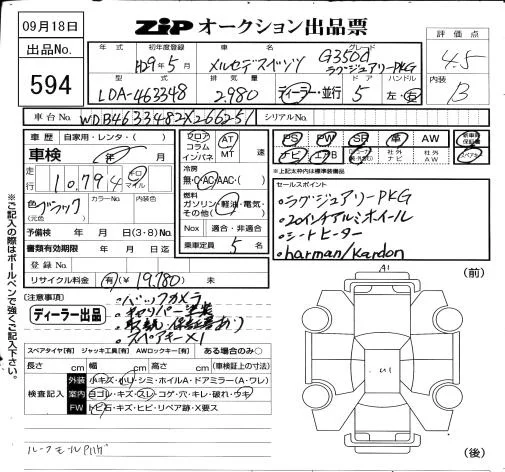 09月18日
ZIP オークション出品票
出品No.
594
年式
初年度登録
H29年5月
車名
メルセデスベンツ
グレード
G350d
ラグジュアリーPKG
評価点
4.5
型式
LDA-463348
排気量
2,980
ディーラー・並行
ドア
5
ハンドル
左・右
内装
B
車台No.
WDB4633482X266251
シリアルNo.
車歴
自家用・レンタ・( )
車検
年 月
走行
10,794
キロ
マイル
色
ブラック
(元色)
カラーNo.
内装色
予備検 年 月 日(3・8)No.
書類有効期限 年 月 日迄
登録No.
リサイクル料金 有(¥ 19,780 ) 未
フロア
コラム
インパネ
AT
MT
速
冷房
無・AC・AAC・( )
燃料
ガソリン・軽油・電気・
その他( )
Nox 適合・非適合
乗車定員 5 名
PS PW SR 革 AW 新車時保証書
ナビ エアB 社外ナビ 社外AW スペアキー
*上記太枠内は標準装備品
セールスポイント
・ラグジュアリーPKG
・20インチアルミホイール
・シートヒーター
・harman/kardon
(注意事項)
ディーラー出品
・バックカメラ
・キャリパー塗装
・取説・保証書あり
・スペアキー×1
スペアタイヤ[有] ジャッキ工具[有] AWロックキー[有] ある場合のみ○
長さ cm 幅 cm 高さ cm (車検証上の寸法)
検査記入
外装 小キズ・小U・シミ・ホイルA・ドアミラー(A・ワレ)
室内 ヨゴレ・キズ・スレ・コゲ・穴・キレ・破れ・ウキ
FW トビ石・キズ・ヒビ・リペア跡・X要ス
※ご記入の際はボールペンで強くご記入下さい。
A1
(前)
U1
(後)